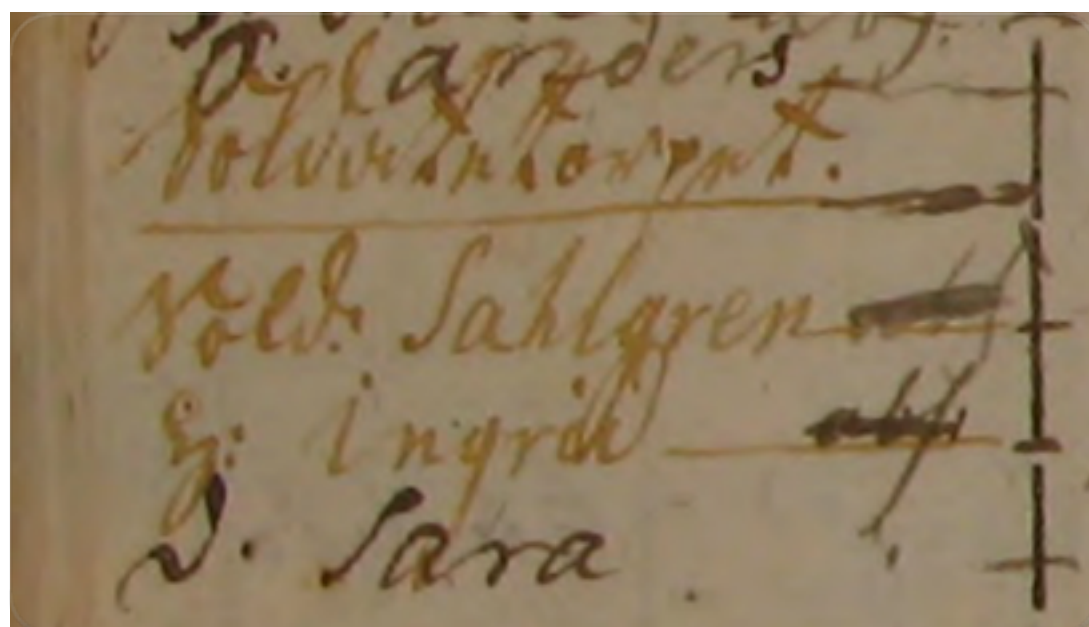 D. anders
Soldatetorpet.
Sold. Sahlgren
H: ingrid
D. Sara